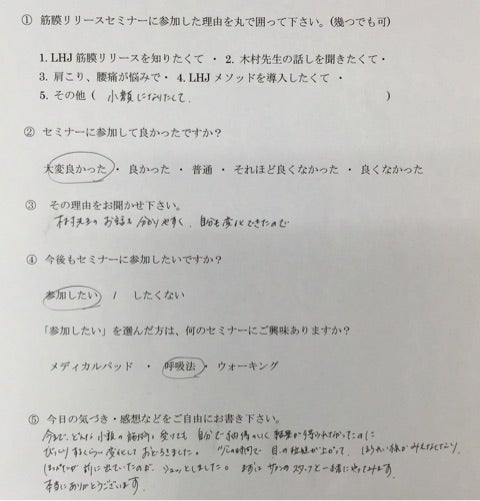 ① 筋膜リリースセミナーに参加した理由を丸で囲って下さい。(幾つでも可)
1. LHJ 筋膜リリースを知りたくて ・ 2. 木村先生の話しを聞きたくて・
3. 肩こり、腰痛が悩みで・ 4. LHJ メソッドを導入したくて ・
5. その他 ( 小顔になりたくて. )
② セミナーに参加して良かったですか?
大変良かった ・ 良かった ・ 普通 ・ それほど良くなかった ・ 良くなかった
③ その理由をお聞かせ下さい。
木村先生のお話も分かりやすく、自分も変化できたので
④ 今後もセミナーに参加したいですか?
参加したい / したくない
「参加したい」を選んだ方は、何のセミナーにご興味ありますか?
メディカルパッド ・ 呼吸法 ・ ウォーキング
⑤ 今日の気づき・感想などをご自由にお書き下さい。
今まで、どんな小顔の施術を受けても 自分で納得のいく結果が得られなかったのに
びっくりするくらい変化しておどろきました。 の時間で 目の位置が上がって、ほうれい線がみえなくなり、
が前に出ていたのが シュッとしました。 まずは サロンのスタッフと一緒にやってみます。
本当にありがとうございます。